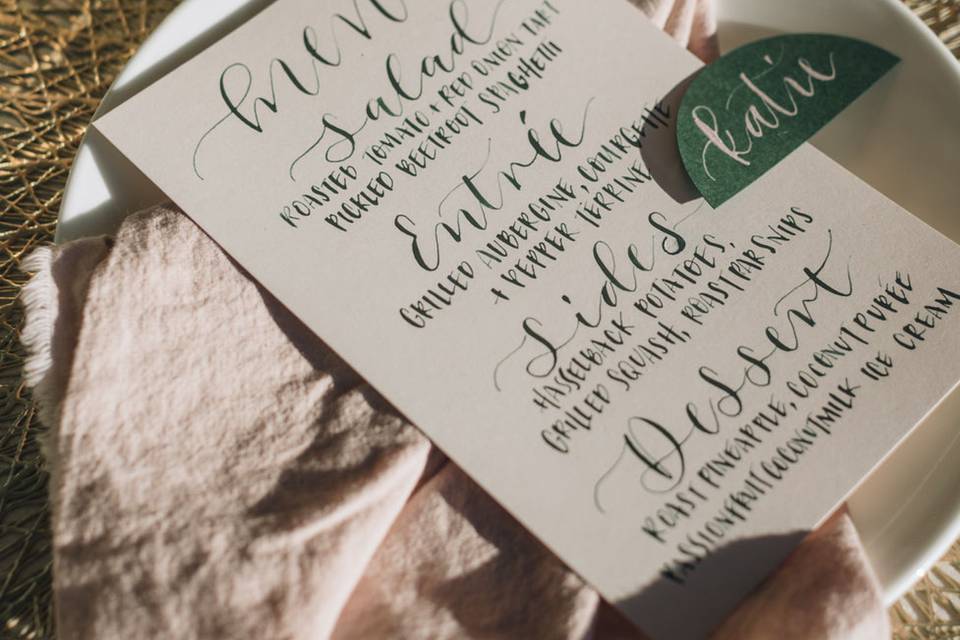 Menu
Salad
ROASTED TOMATO + RED ONION TART
PICKLED BEETROOT SPAGHETTI
Entrée
GRILLED AUBERGINE, COURGETTE
+ PEPPER TERRINE
Sides
HASSELBACK POTATOES,
GRILLED SQUASH, ROAST PARSNIPS
Dessert
ROAST PINEAPPLE, COCONUT PURÉE
PASSIONFRUIT COCONUTMILK ICE CREAM
katie